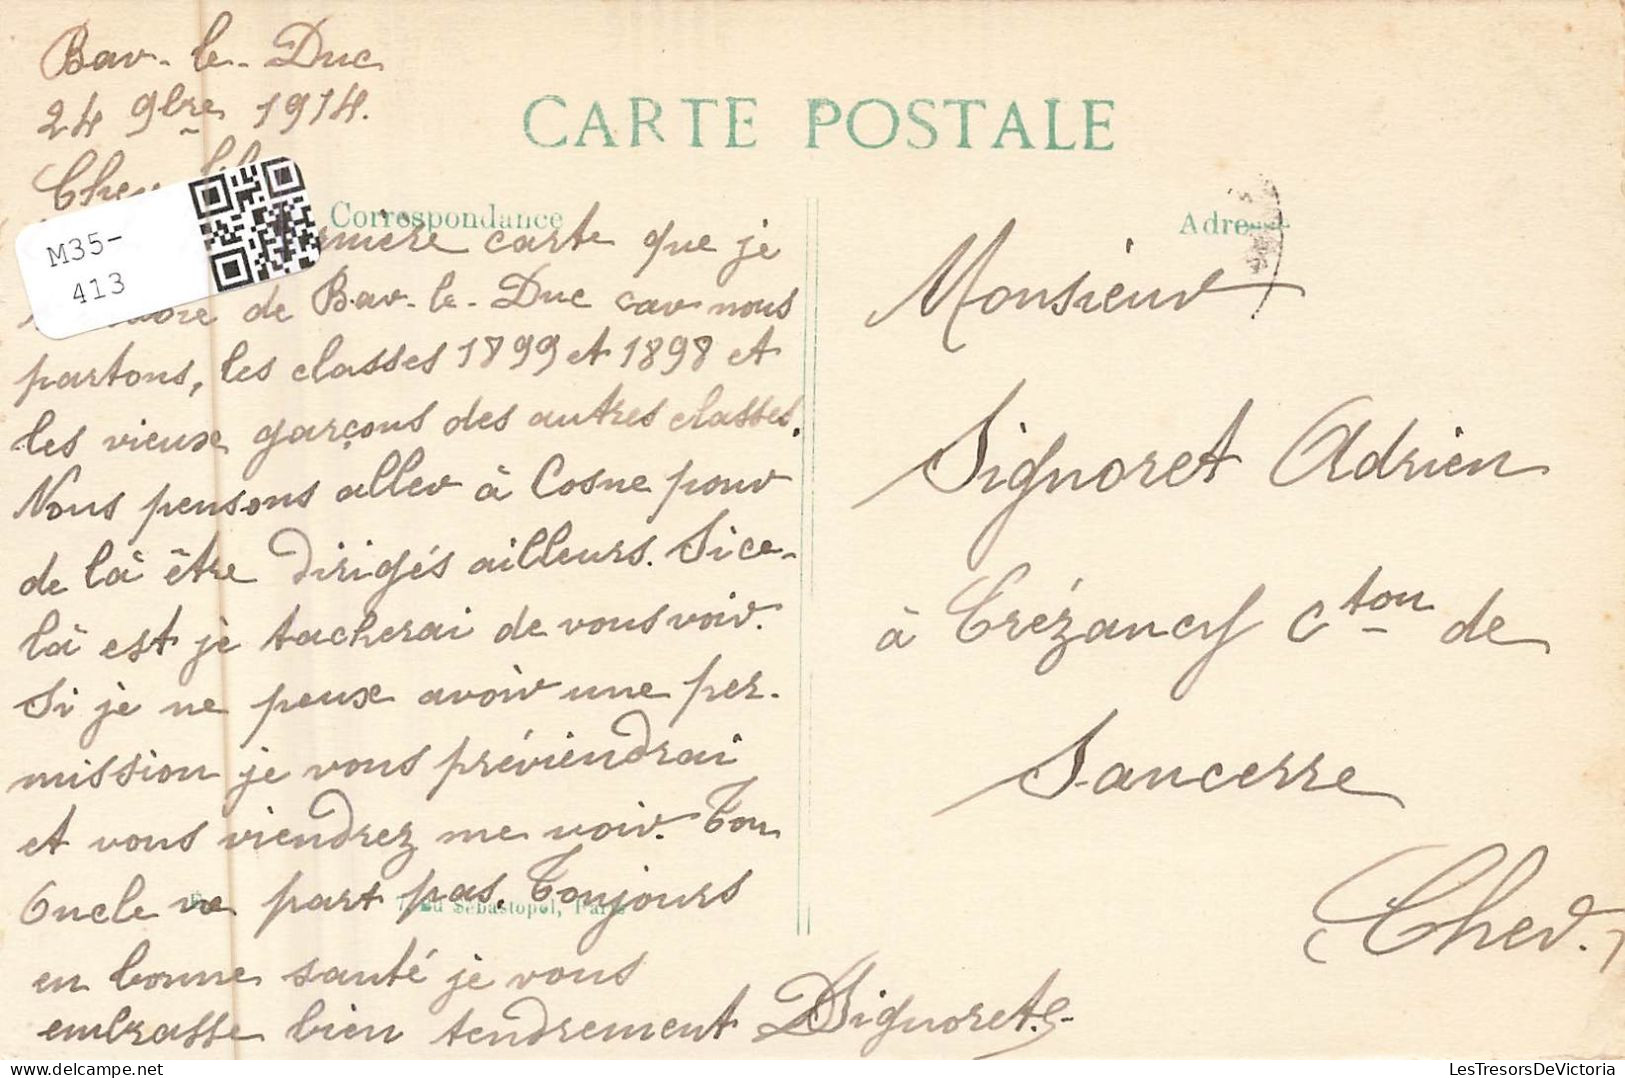 Bar-le-Duc
24 9bre 1914.
CARTE POSTALE
M35-
413
Correspondance
Adresse
carte que je
de Bar-le-Duc car nous
partons, les classes 1899 et 1898 et
les vieux garçons des autres classes.
Nous pensons aller à Cosne pour
de là être dirigés ailleurs. Si ce-
là est je tacherai de vous voir.
Si je ne peux avoir une per-
mission je vous préviendrai
et vous viendrez me voir. Ton
Oncle ne part pas. Toujours
Sébastopol, Paris
en bonne santé je vous
embrasse bien tendrement DSignoret
Monsieur
Signoret Adrien
à Crézancy Cton de
Sancerre
(Cher.)
LesTresorsDeVictoria